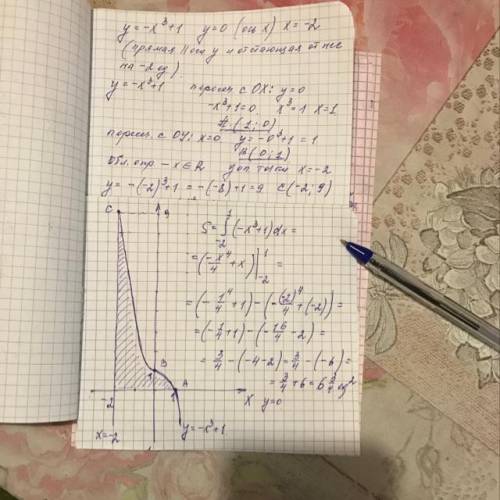 y=-x³+1 y=0 (ось x) x=-2
(прямая || оси y и отстоящая от нее
на -2 ед)
y=-x³+1 пересеч. с OX: y=0
-x³+1=0 x³=1 x=1
A (1; 0)
пересеч. с OY: x=0 y=-0³+1=1
B(0; 1)
Обл. опр. - x∈R доп. точки x=-2
y=-(-2)³+1=-(-8)+1=9 C(-2; 9)
C 9
S=∫₋₂¹(-x³+1)dx=
=(-x⁴/4+x)|₋₂¹=
=(-1⁴/4+1)-(-(-2)⁴/4+(-2))=
=(-1/4+1)-(-16/4-2)=
=3/4-(-4-2)=3/4-(-6)=
=3/4+6=6 3/4 ед²
1 B
A
-2 1 X y=0
x=-2 y=-x³+1